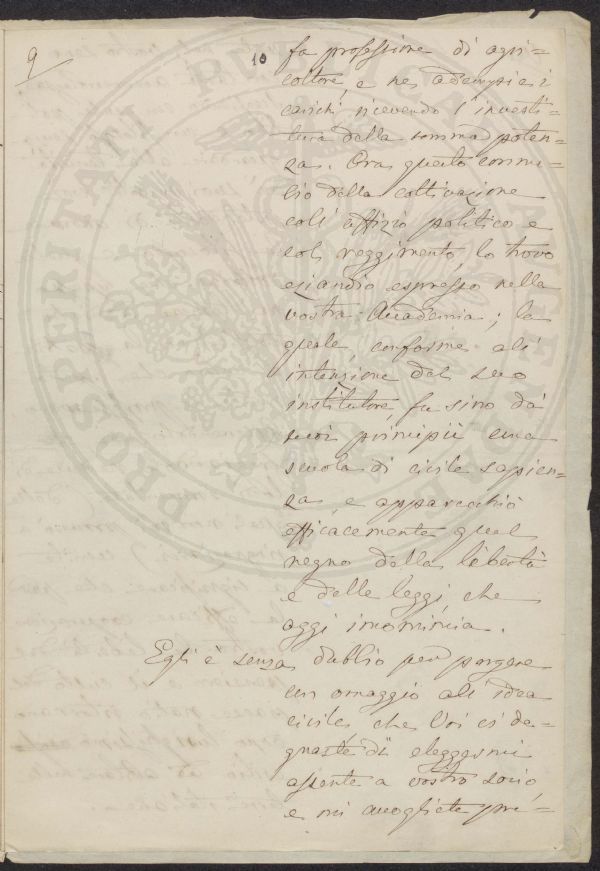 9
10
fa professione di agri-
coltore, e ne adempie i
carichi ricevendo l'investi-
tura della somma poten-
za. Ora questo connu-
bio della coltivazione
coll'uffizio politico e
col reggimento, lo trovo
eziandio espresso nella
vostra Accademia; la
quale, conforme all'
intenzione del suo
institutore fu sino da'
suoi principii una
scuola di civile sapien-
za, e apparecchiò
efficacemente quel
regno della libertà
e delle leggi che
oggi incomincia.
Egli è senza dubbio per porgere
un omaggio all'idea
civile, che Voi ci de-
gnaste di eleggermi
assente a vostro socio
e mi accogliete pre-
PROSPERITATI PUBLICAE AUGENDAE